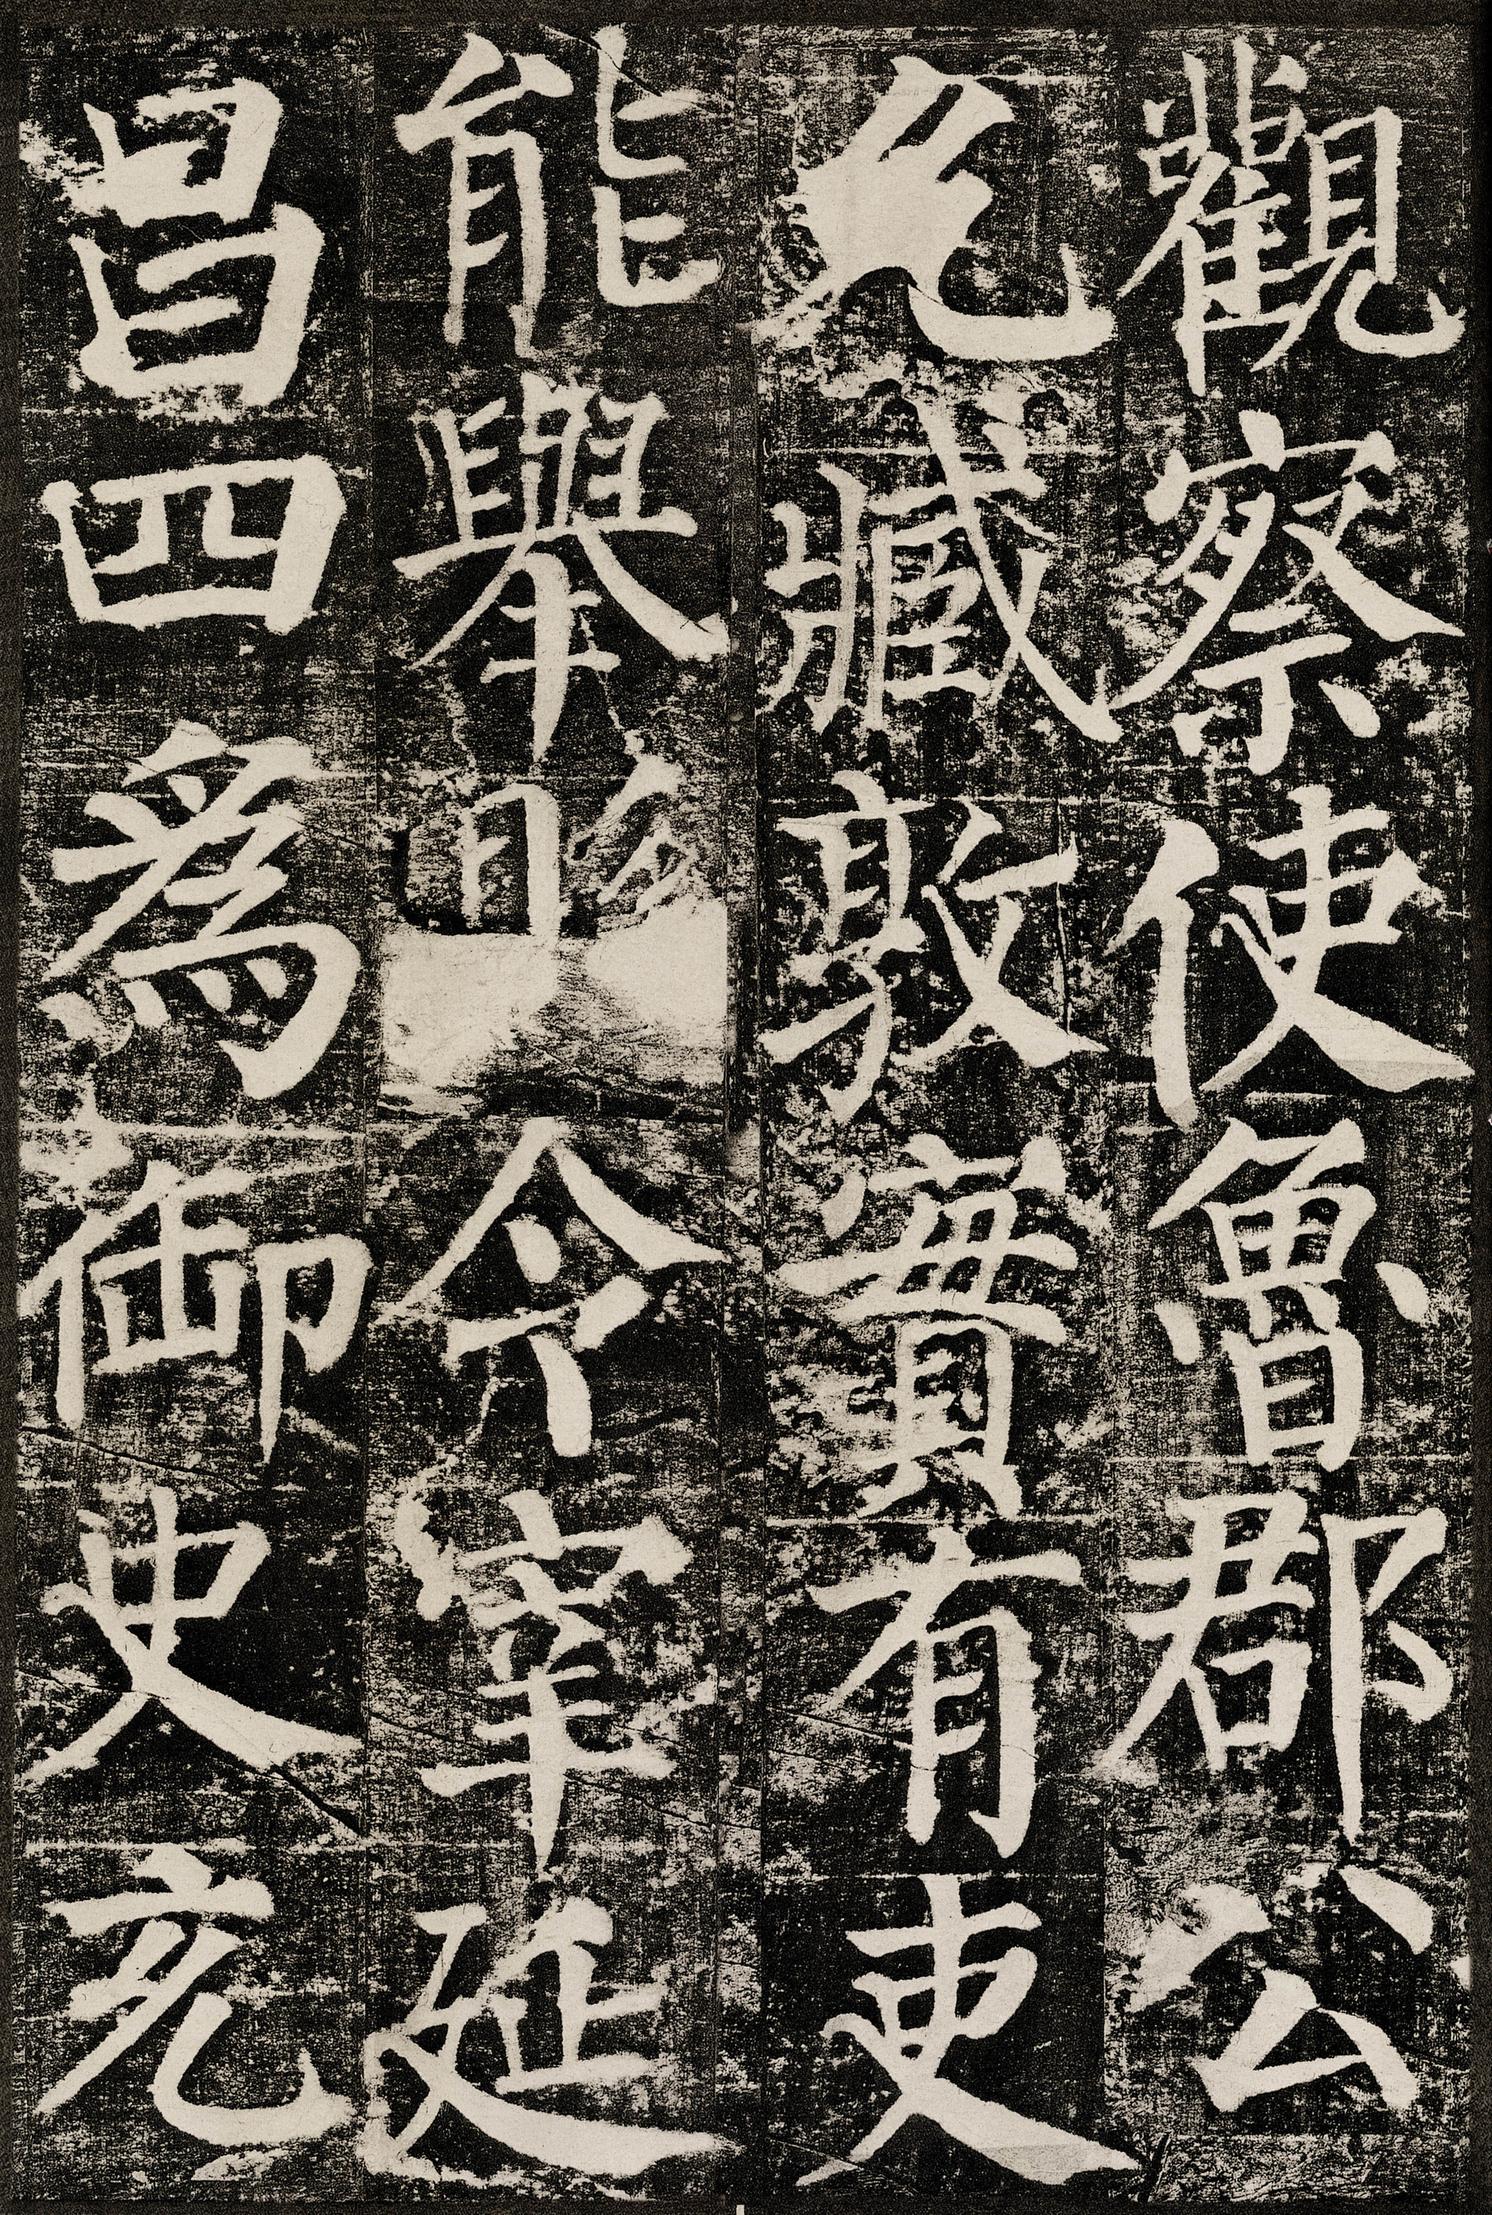 觀察使魯郡公
允臧敦實有吏
能舉縣令宰延
昌四爲御史充